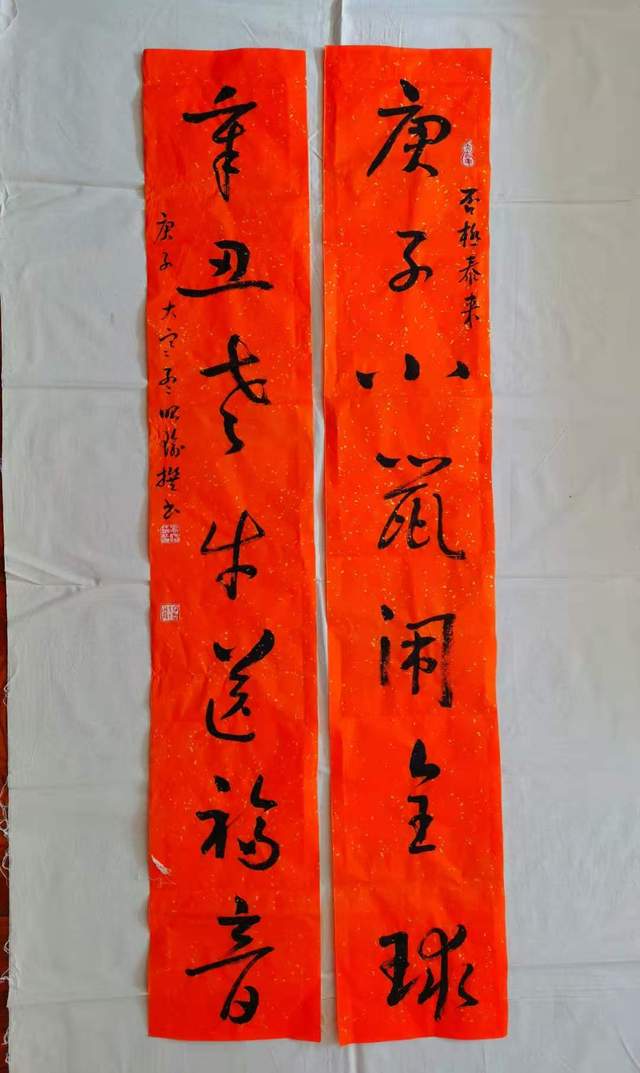 否极泰来
庚子小鼠闹全球
辛丑老牛送福音
庚子大寒
撰书